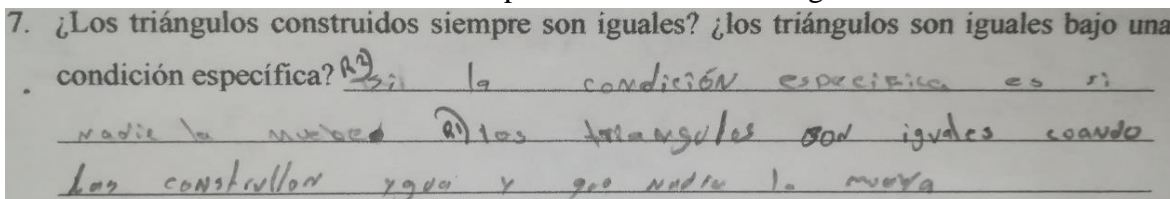 7. ¿Los triángulos construidos siempre son iguales? ¿los triángulos son iguales bajo una
condición específica? R2) si la condición especifica es si
nadie la muebe R1) los triangulos son iguales coando
las construllon ygua y que nadie la mueva